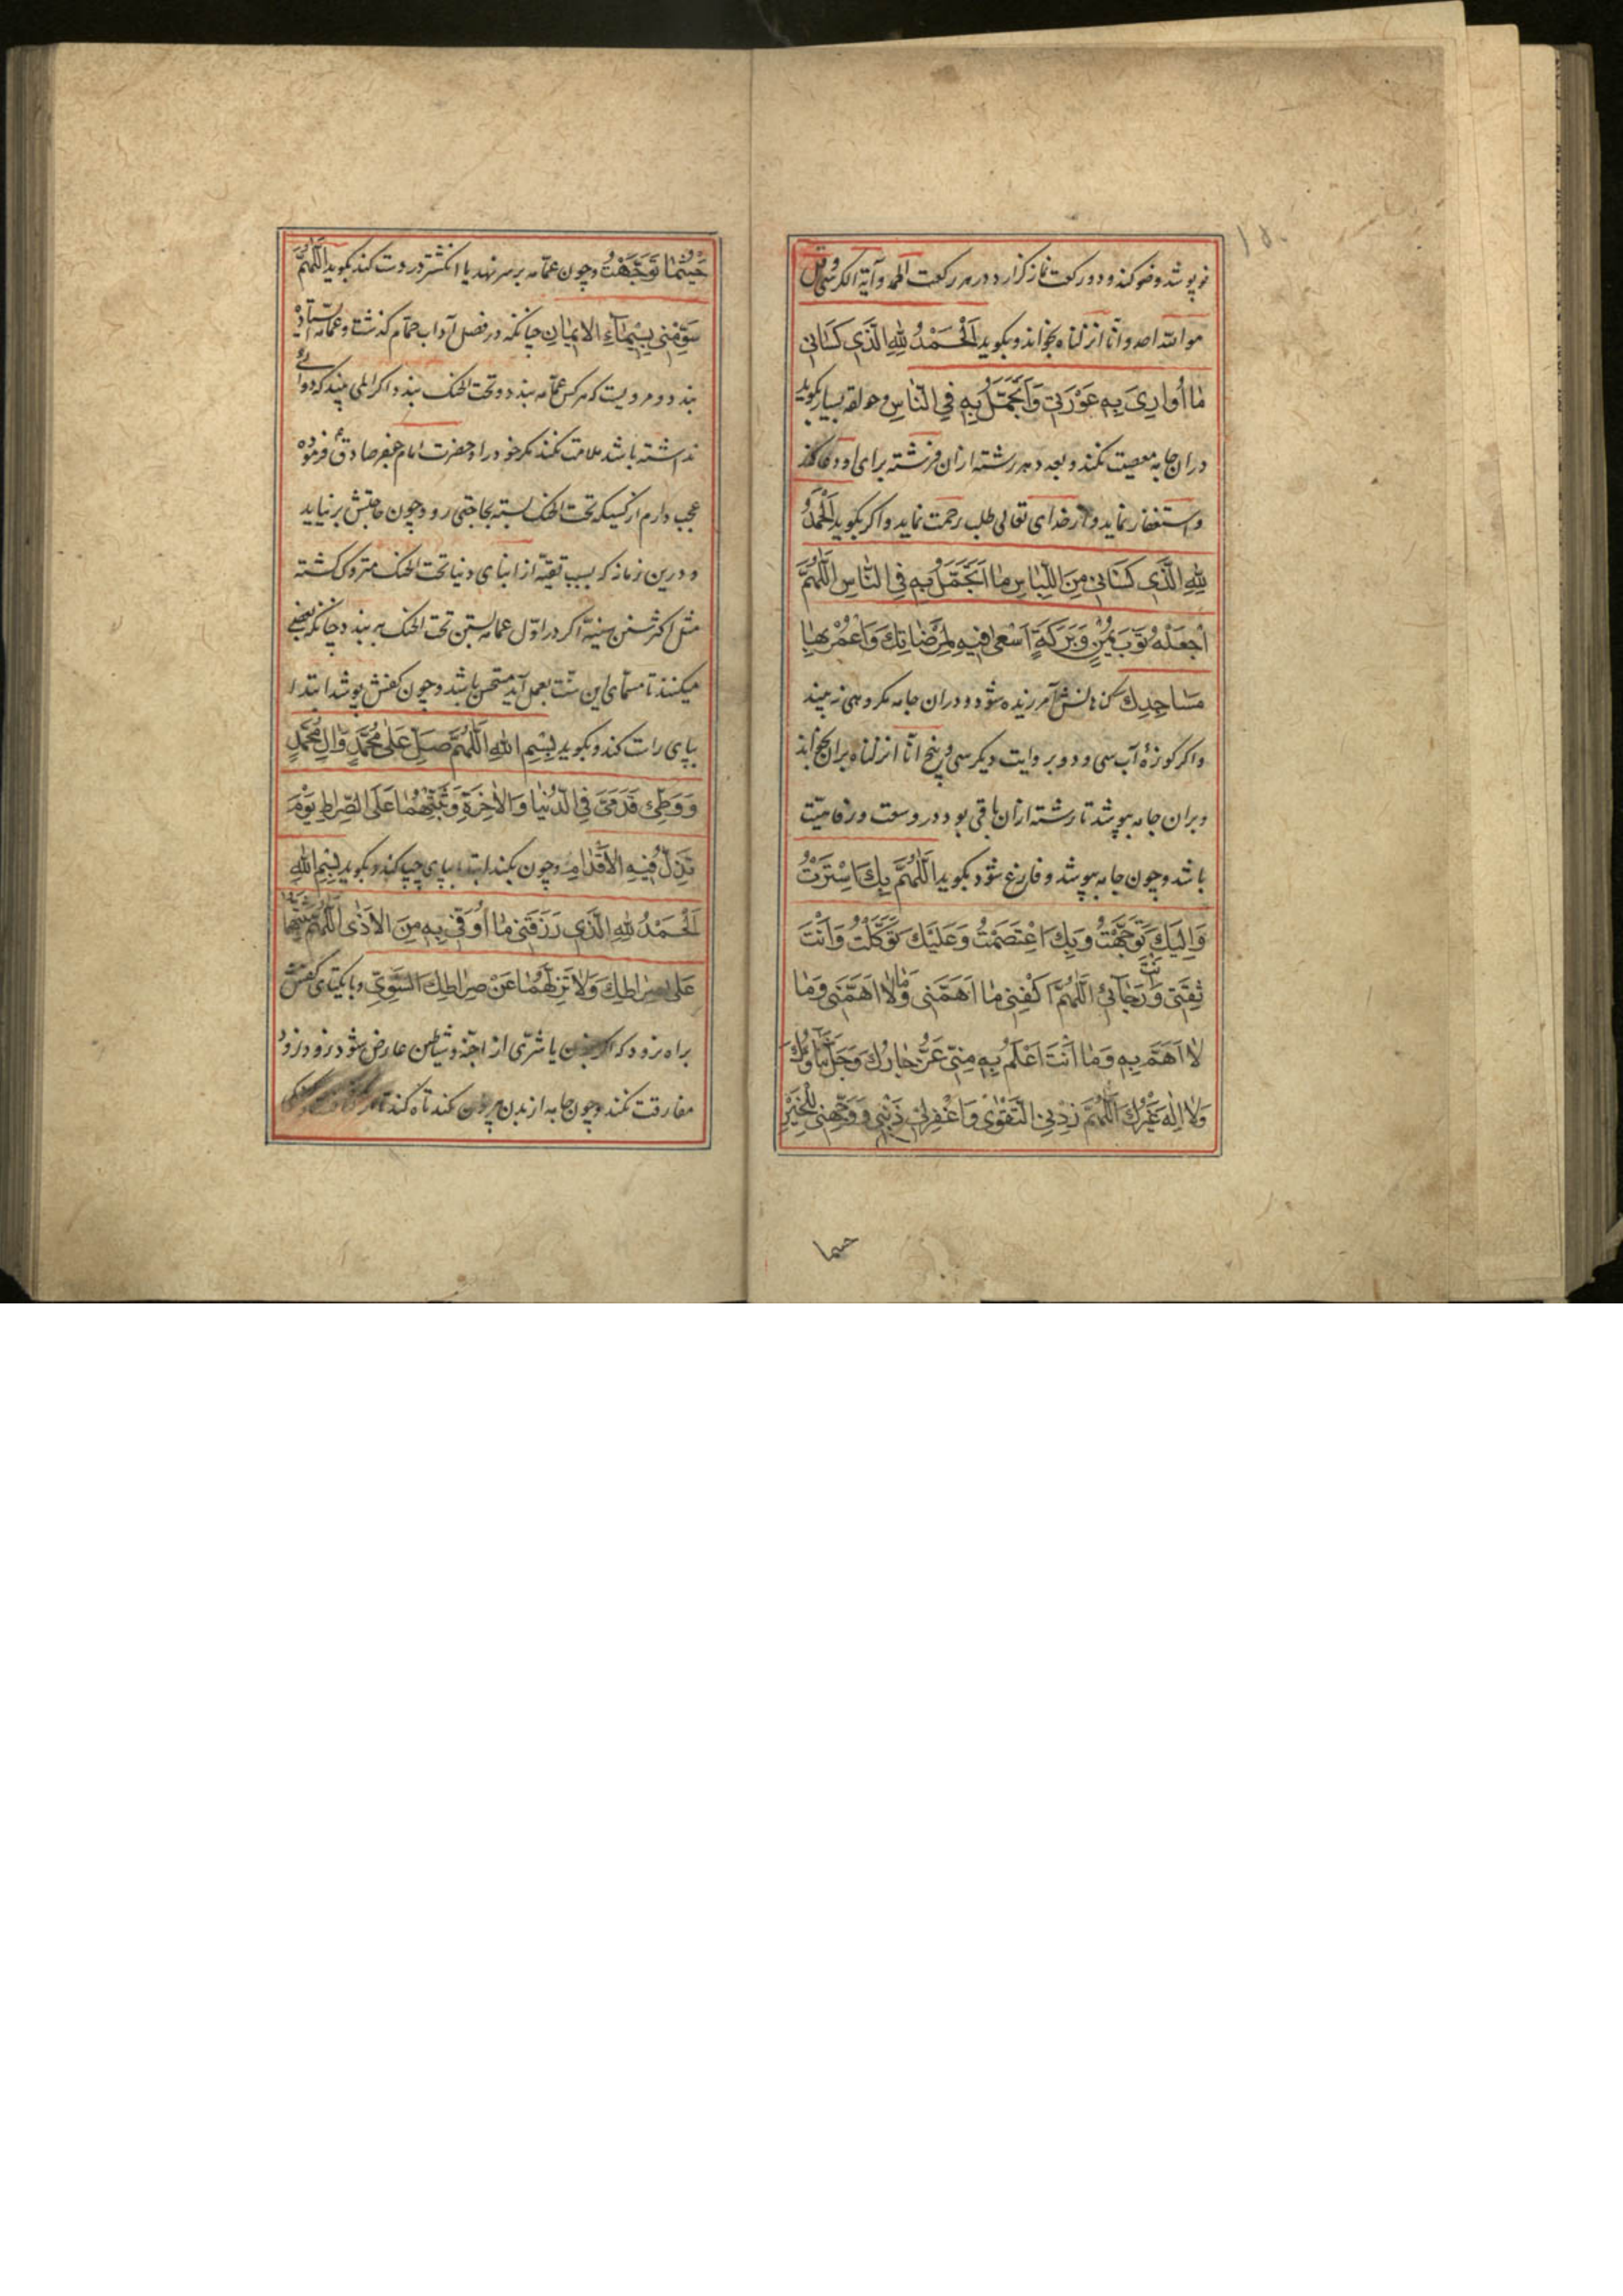 نو پوشد وضو کند و دو رکعت نماز گزارد در هر رکعت الحمد و آیة الکرسی و قل
هو الله احد و انا انزلناه بخواند و بگوید اَلْحَمْدُ لِلّٰهِ الَّذی کَسَانی
مٰا اُوارِیَ بِهِ عَوْرَتی وَاَتَجَمَّلُ بِهِ فِی النّاسِ و حولقه بسیار بگوید
دران جامه معصیت نکند و بعدد هر رشته ازان فرشته برای او دعا کند
و استغفار نماید و از خدای تعالی طلب رحمت نماید و اگر بگوید اَلْحَمْدُ
لِلّٰهِ الَّذی کَسَانی مِنَ اللِّبٰاسِ مٰا اَتَجَمَّلُ بِهِ فِی النّٰاسِ اَللّٰهُمَّ
اجْعَلْهُ ثَوْبَ یُمْنٍ وَبَرَکَةٍ اَسْعٰی فیهِ لِمَرْضٰاتِكَ وَاَعْمُرُ بِهٰا
مَسٰاجِدِكَ گناهانش آمرزیده شود و دران جامه مکروهی نه بیند
و اگر کوزهٔ آب سی و دو و بروایت دیگر سی و پنج انا انزلناه بران بخواند
و بران جامه بپوشد تا رشته ازان باقی بود در وسعت و رفاهیت
باشد و چون جامه بپوشد و فارغ شود بگوید اَللّٰهُمَّ بِكَ اسْتَتَرْتُ
وَاِلَیْكَ تَوَجَّهْتُ وَبِكَ اعْتَصَمْتُ وَعَلَیْكَ تَوَکَّلْتُ وَاَنْتَ
ثِقَتی وَاَنْتَ رَجٰائی اَللّٰهُمَّ اکْفِنی مٰا اَهَمَّنی وَمٰا لٰا اَهَمَّنی وَمٰا
لٰا اَهَمَّ بِهِ وَمٰا اَنْتَ اَعْلَمُ بِهِ مِنّی عَزَّ جٰارُكَ وَجَلَّ ثَنٰاؤُكَ
وَلٰا اِلٰهَ غَیْرُكَ اَللّٰهُمَّ زِدْنِی التَّقْوٰی وَاغْفِرْلی ذَنْبی وَوَجِّهْنی لِلْخَیْرِ
حیثما
حَیْثُمٰا تَوَجَّهْتُ و چون عمامه بر سر نهد یا انگشتر در دست کند بگوید اَللّٰهُمَّ
سَوِّمْنی بِسیمٰاءِ الْایمٰانِ چنانکه در فصل آداب حمام گذشت و عمامه استاده
بندد و مرویست که هر کس عمامه بندد و تحت الحنک نبندد و اگر المی بیند که دوائے
نداشته باشد ملامت نکند مگر خود را و حضرت امام جعفر صادق ع فرموده
عجب دارم از کسیکه تحت الحنک بسته بحاجتی رود و چون حاجتش برنیاید
و درین زمانه که بسبب تقیه از ابنای دنیا تحت الحنک متروک گشته
مثل اکثر سنن سنیة اگر در اول عمامه بستن تحت الحنک به بندد چنانکه بعضی
میکنند تا مسمای این سنت بعمل آید مستحسن باشد و چون کفش پوشد ابتدا
بپای راست کند و بگوید بِسْمِ اللّٰهِ اَللّٰهُمَّ صَلِّ عَلٰی مُحَمَّدٍ وَّاٰلِ مُحَمَّدٍ
وَوَطِّئْ قَدَمَیَّ فِی الدُّنْیٰا وَالْاٰخِرَةِ وَثَبِّتْهُمٰا عَلَی الصِّرٰاطِ یَوْمَ
تَزِلُّ فیهِ الْاَقْدٰامُ و چون بکند ابتدا بپای چپ کند و بگوید بِسْمِ اللّٰهِ
اَلْحَمْدُ لِلّٰهِ الَّذی رَزَقَنی مٰا اُوَقّی بِهِ مِنَ الْاَذٰی اَللّٰهُمَّ ثَبِّتْهُمٰا
عَلٰی صِرٰاطِكَ وَلٰا تُزِلَّهُمٰا عَنْ صِرٰاطِكَ السَّوِیِّ و با یکتای کفش
براه نرود که اگر یا شرّی از اجنّه و شیاطین عارض شود زود زود
مفارقت نکند و چون جامه از بدن بیرون کند تاه کند تا